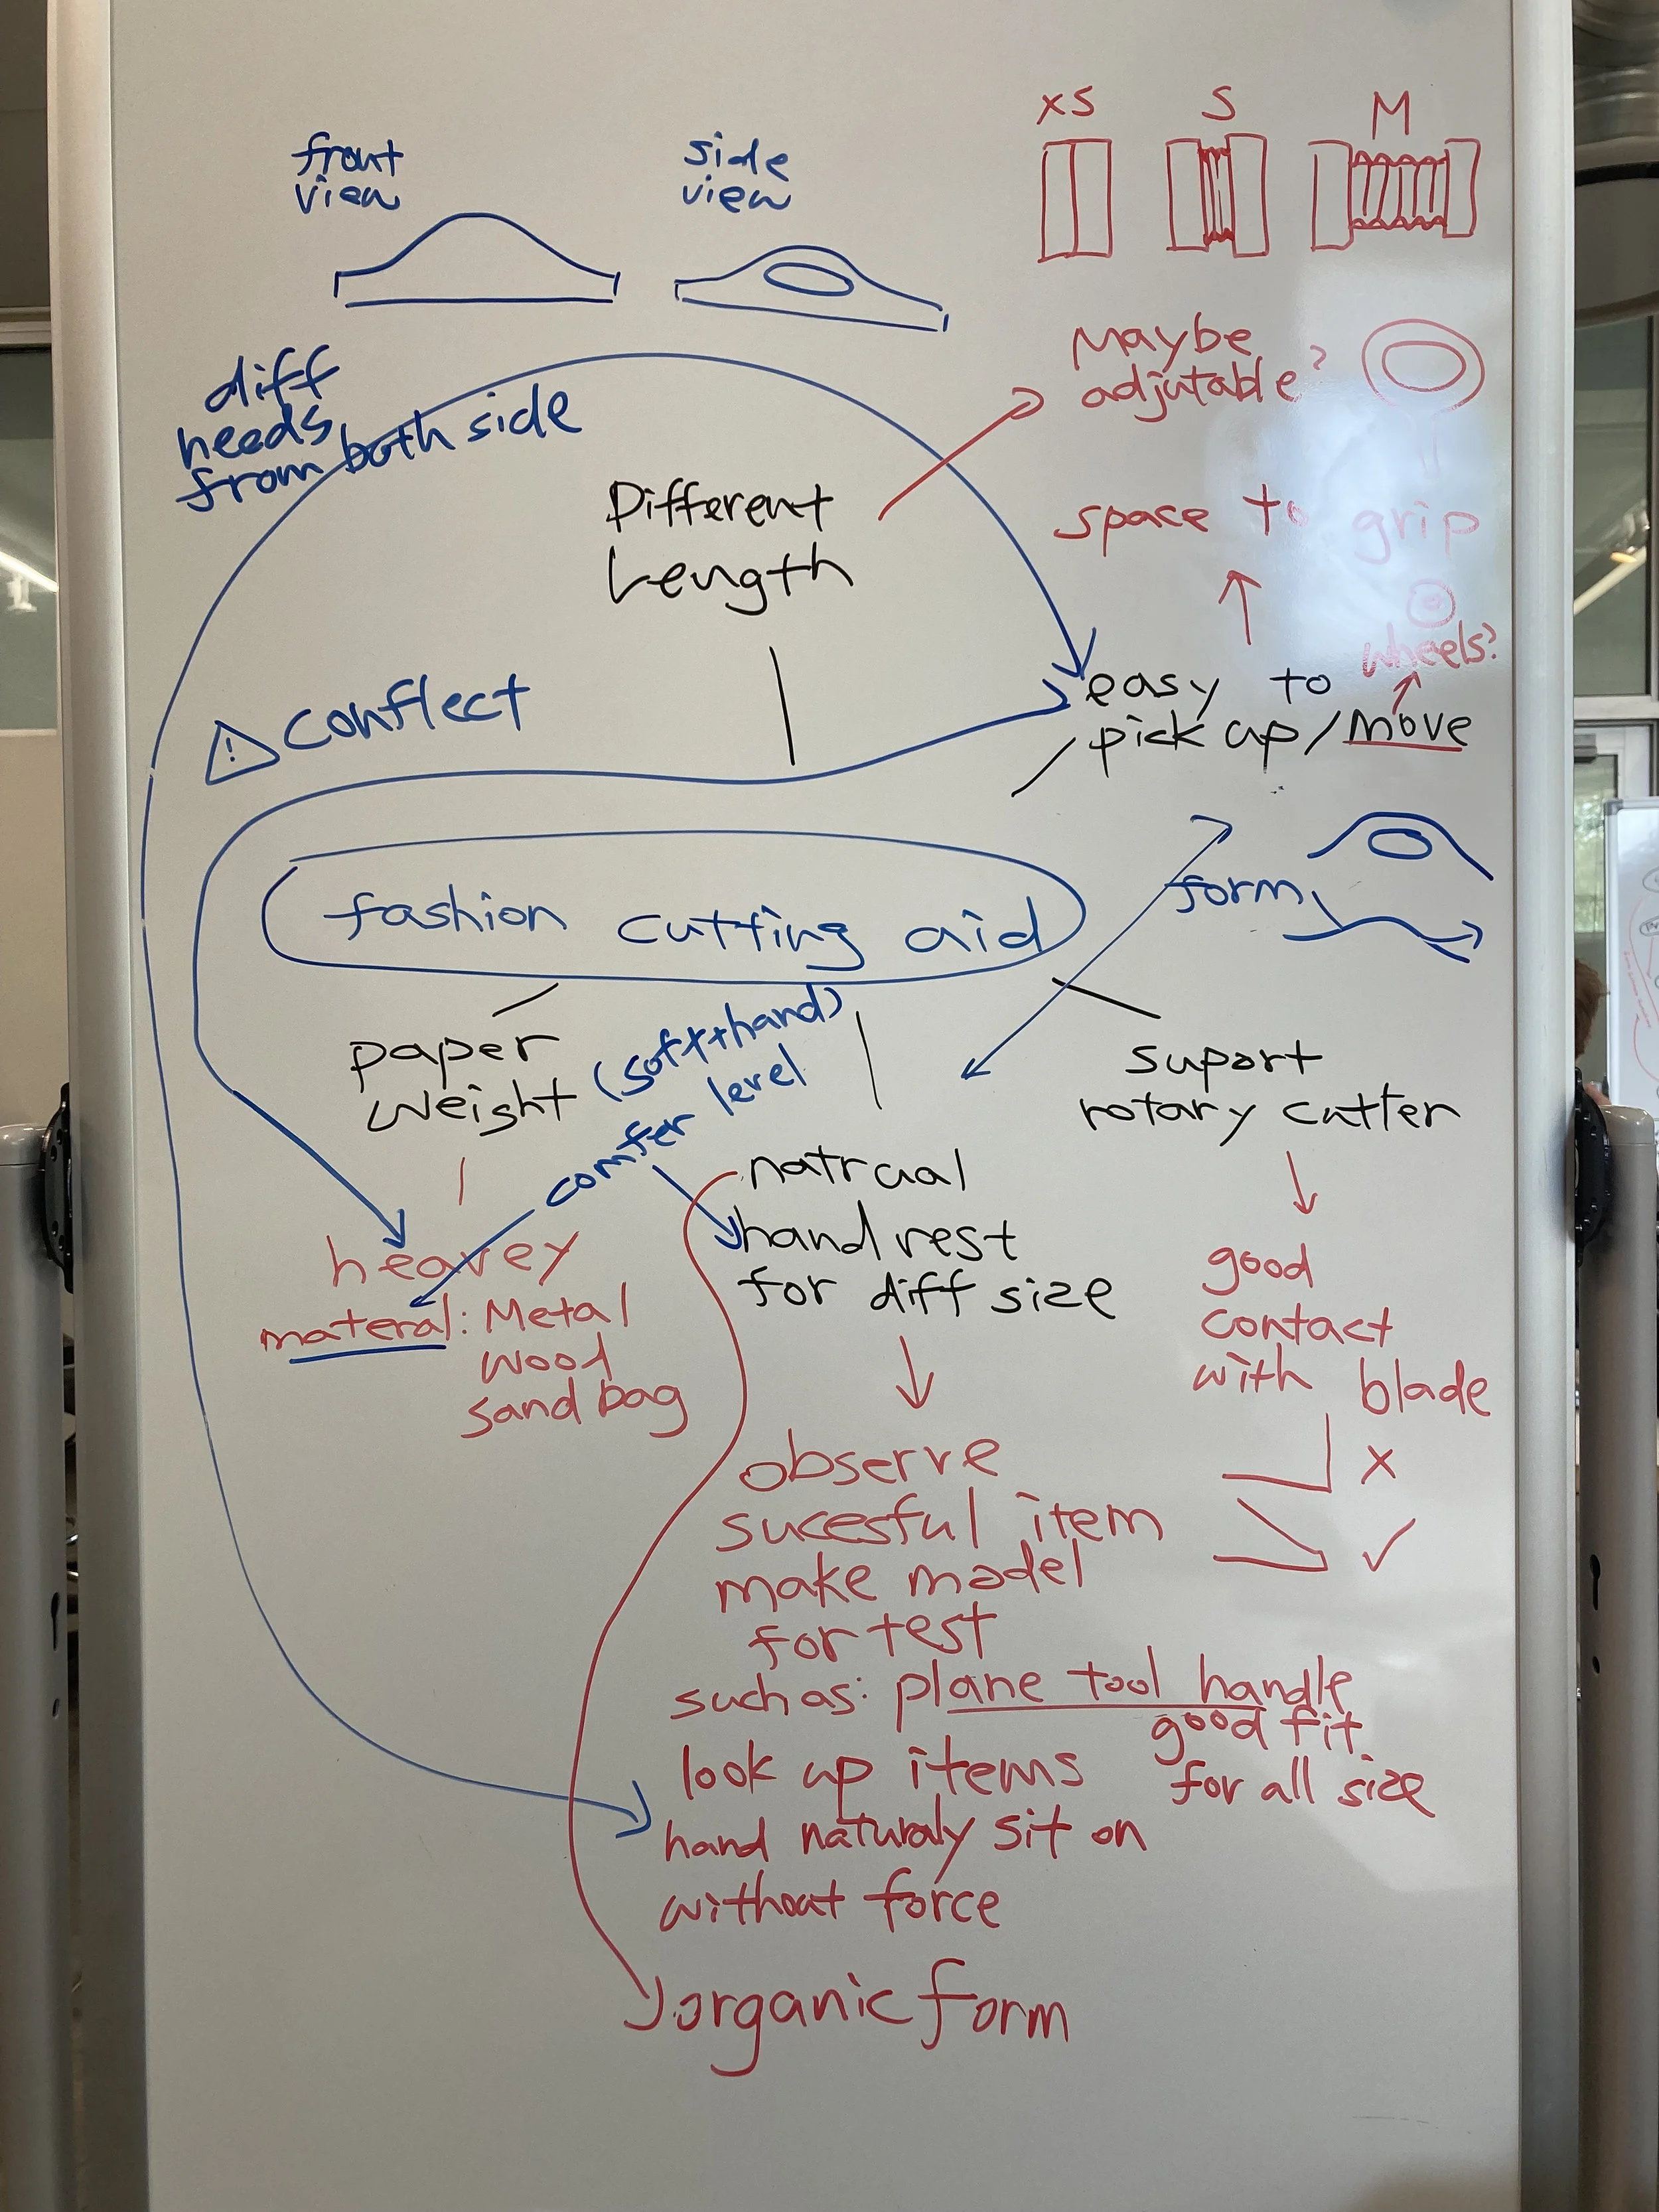 XS S M
front
view
side
view
Maybe
adjutable?
diff
needs
from both side
Different
Length
space to grip
wheels?
easy to
pick up/move
⚠ conflect
form
fashion cutting aid
paper
weight
(soft++hand)
comfer level
suport
rotary cutter
natrual
hand rest
for diff size
heavey
materal: Metal
wood
sand bag
good
contact
with blade
x
✓
observe
sucesful item
make model
for test
such as: plane tool handle
good fit
for all size
look up items
hand naturaly sit on
without force
organic form